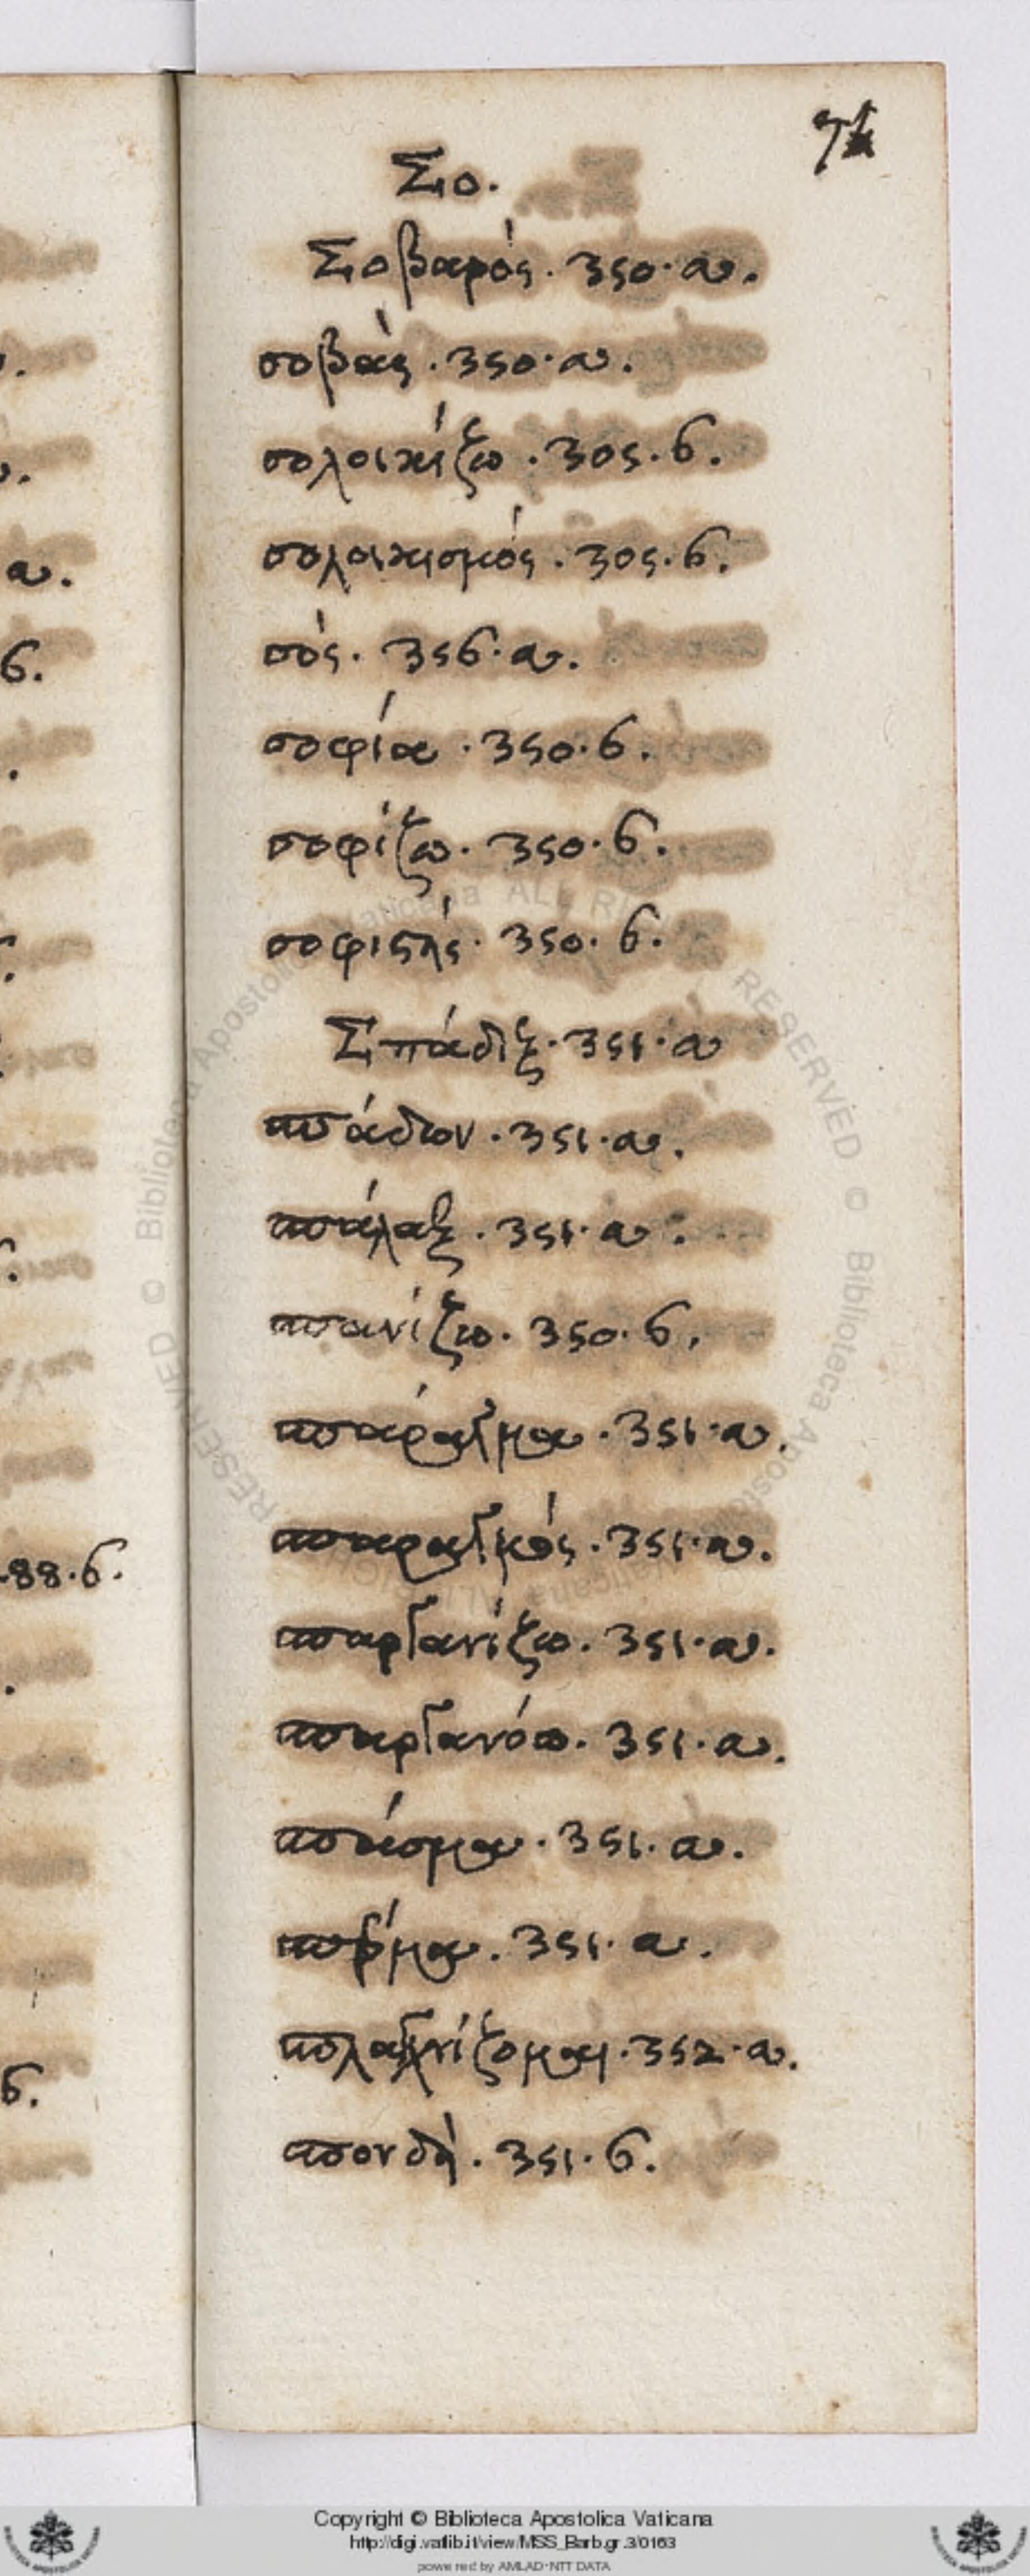 71
Σο.
Σοβαρός. 350. a.
σοβάς. 350. a.
σολοικίζω. 305. b.
σολοικισμός. 305. b.
σός. 356. a.
σοφία. 350. b.
σοφίζω. 350. b.
σοφιστής. 350. b.
Σπάδιξ. 351. a
σπάδων. 351. a.
σπάλαξ. 351. a.
σπανίζω. 350. b.
σπάραγμα. 351. a.
σπαραγμός. 351. a.
σπαργανίζω. 351. a.
σπαργανόω. 351. a.
σπάσμα. 351. a.
σπέρμα. 351. a.
σπλαγχνίζομαι. 352. a.
σπονδή. 351. b.
a.
b.
.88. b.
b.
Copyright © Biblioteca Apostolica Vaticana
http://digi.vatlib.it/view/MSS_Barb.gr.3/0163
powered by AMLAD-NTT DATA